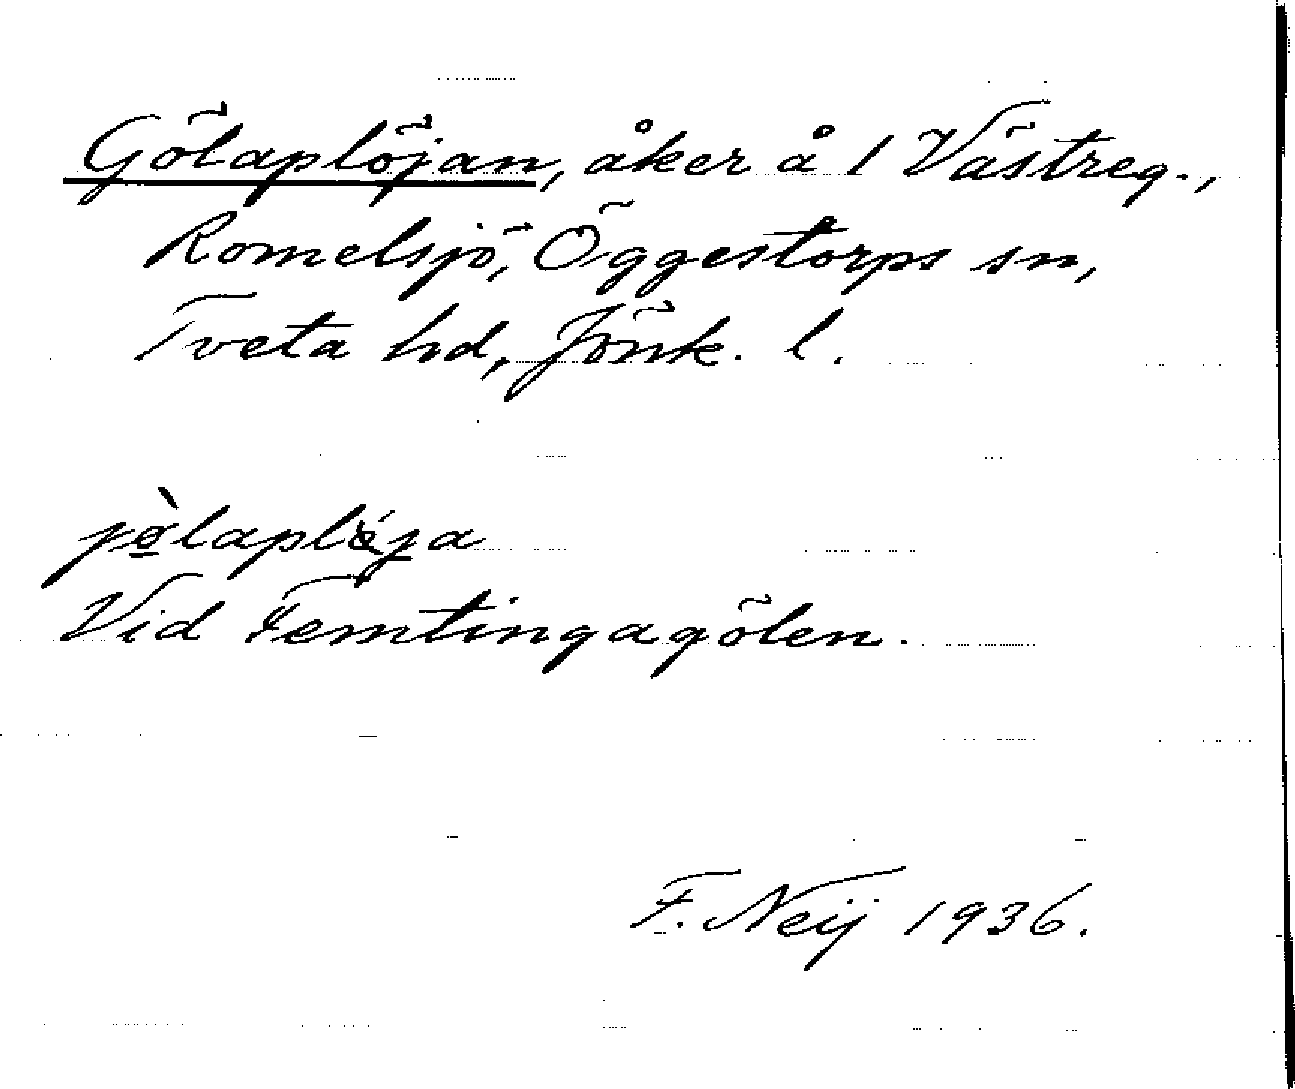 Gölaplöjan, åker å 1 Västreg.,
Romelsjö, Öggestorps sn,
Tveta hd, Jönk. l.
jø̀laplǿja
Vid Femtingagölen.
F. Neij 1936.